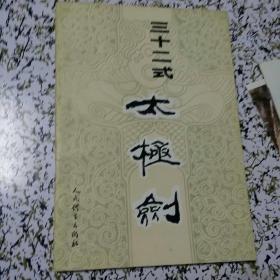 三十二式
太極劍
人民体育出版社